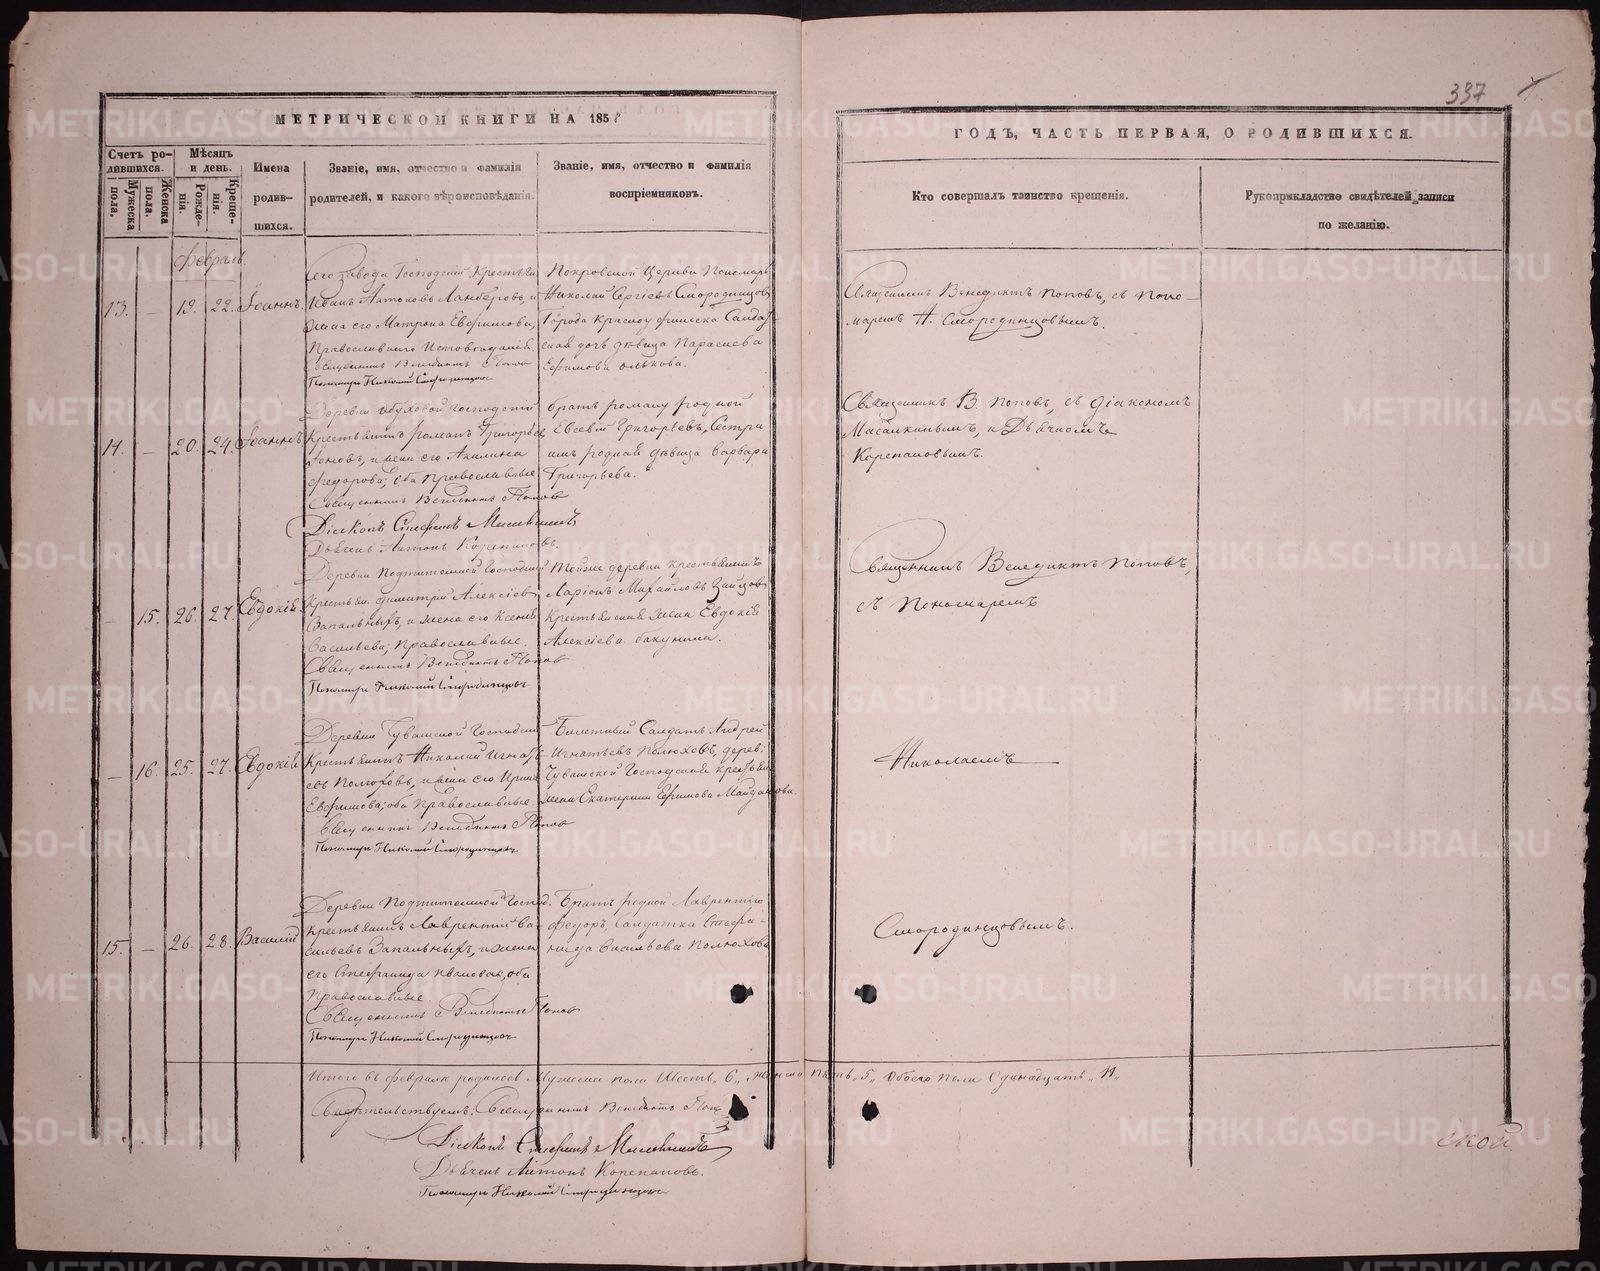 337
МЕТРИЧЕСКОЙ КНИГИ НА 1858
ГОДЪ, ЧАСТЬ ПЕРВАЯ, О РОДИВШИХСЯ.
Счетъ ро-
дившихся.
Мужеска пола.
Женска пола.
Мѣсяцъ
и день.
Рожде-
нія.
Креще-
нія.
Имена
родив-
шихся.
Званіе, имя, отчество и фамилія
родителей, и какого вѣроисповѣданія.
Званіе, имя, отчество и фамилія
воспріемниковъ.
Кто совершалъ таинство крещенія.
Рукоприкладство свидѣтелей записи
по желанію.
Февраль
13. — 19. 22. Іоаннъ.
Сего завода Господскій Крестьян
Иванъ Антоновъ и
жена его Матрона Евфимова,
Православнаго Исповѣданія
Священникъ Венедиктъ Поповъ
Пономарь Николай Смородинцовъ
Покровской Церкви Пономарь
Николай Сергіевъ Смородинцовъ
Города Красноуфимска Солдат-
ская дочь дѣвица Параскева
Ефимова
Священникъ Венедиктъ Поповъ, съ Поно-
маремъ Н. Смородинцовымъ.
14. — 20. 24. Іоаннъ
Деревни Обуховой Господскій
Крестьянинъ Романъ Григорьев
и жена его Акилина
Федорова; оба православные
Священникъ Венедиктъ Поповъ
Діаконъ Стефанъ
Дьячекъ Антонъ Корепановъ.
Братъ Роману родной
Евсевій Григорьевъ, Сестра
имъ родная дѣвица Варвара
Григорьева.
Священникъ В. Поповъ, съ Діакономъ
и Дьячкомъ
Корепановымъ.
— 15. 26. 27. Евдокія
Деревни Подтишенной Господскій
Крестьян Димитрій Алексіевъ
Запальныхъ, и жена его Ксенія
Васильева, Православные.
Священникъ Венедиктъ Поповъ
Пономарь Николай Смородинцовъ
Тойже деревни крестьянинъ
Ларіонъ Михайловъ Зайцовъ
Крестьянская жена Евдокія
Алексіева Бакунина.
Священникъ Венедиктъ Поповъ,
съ Пономаремъ
— 16. 25. 27. Евдокія
Деревни Чувашской Господскій
Крестьянинъ Николай Игнать-
евъ Полюховъ, и жена его Ирина
Евфимова; оба Православные.
Священникъ Венедиктъ Поповъ
Пономарь Николай Смородинцовъ
Билетный Солдатъ Андрей
Игнатьевъ Полюховъ, дерев:
Чувашской Господская крестьян
жена Екатерина Ефимова Майданова.
Николаемъ
15. — 26. 28. Василій
Деревни Подтишенной Господ.
крестьянинъ Лаврентій Ва-
сильевъ Запальныхъ, и жена
его Стефанида Иванова, оба
Православные
Священникъ Венедиктъ Поповъ
Пономарь Николай Смородинцовъ
Братъ родной Лаврентію
Федоръ, Солдатка Стефа-
нида Васильева Полюхова
Смородинцовымъ.
Итого въ феврале родилось Мужеска пола Шесть „6„ Женска пять „5„ Обоего пола Одинадцать „11„
Свидѣтельствуемъ: Священникъ Венедиктъ Поповъ
Діаконъ Стефанъ
Дьячекъ Антонъ Корепановъ.
Пономарь Николай Смородинцовъ
ской
METRIKI.GASO-URAL.RU